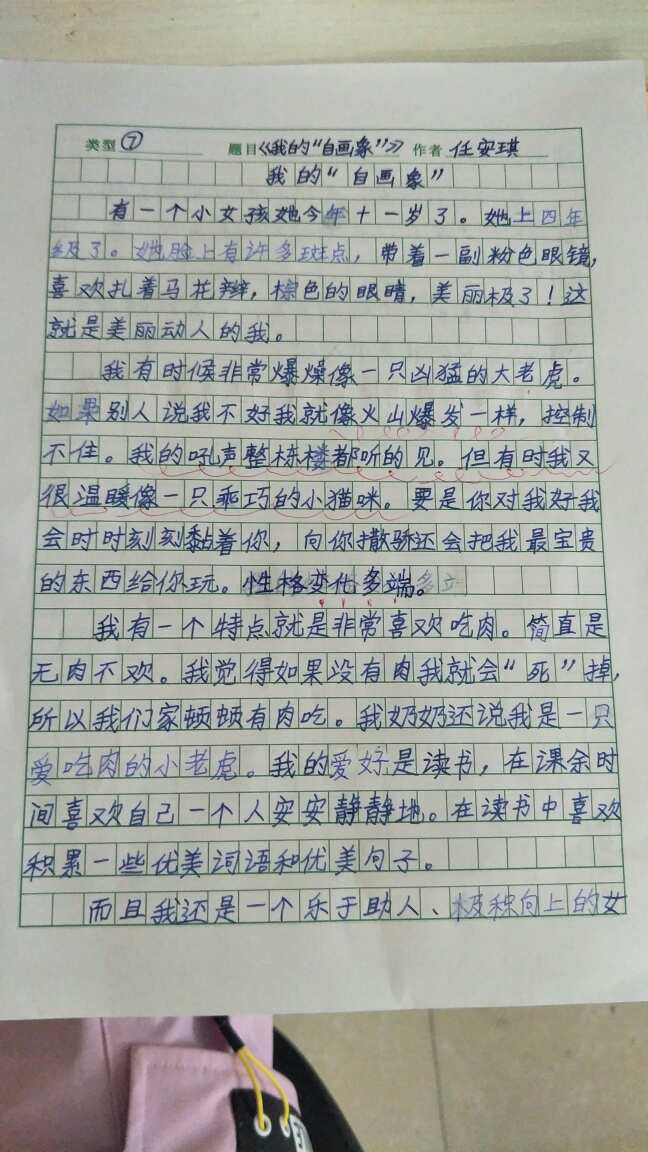 类型⑦ 题目《我的“自画象”》 作者 任安琪
我的“自画象”
有一个小女孩她今年十一岁了。她上四年
级了。她脸上有许多斑点，带着一副粉色眼镜，
喜欢扎着马花辫，棕色的眼睛，美丽极了！这
就是美丽动人的我。
我有时候非常爆燥像一只凶猛的大老虎。
如果别人说我不好我就像火山爆发一样，控制
不住。我的吼声整栋楼都听的见。但有时我又
很温暖像一只乖巧的小猫咪。要是你对我好我
会时时刻刻黏着你，向你撒骄还会把我最宝贵
的东西给你玩。性格变化多端。
我有一个特点就是非常喜欢吃肉。简直是
无肉不欢。我觉得如果没有肉我就会“死”掉，
所以我们家顿顿有肉吃。我奶奶还说我是一只
爱吃肉的小老虎。我的爱好是读书，在课余时
间喜欢自己一个人安安静静地。在读书中喜欢
积累一些优美词语和优美句子。
而且我还是一个乐于助人、极积向上的女